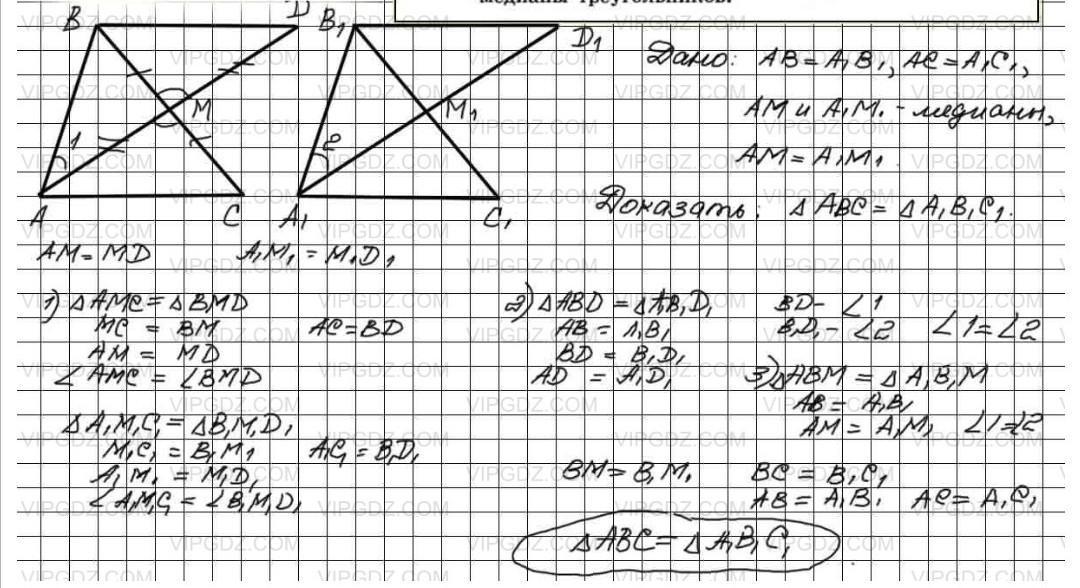 медианы треугольников.
B D B₁ D₁
M M₁
1 2
A C A₁ C₁
Дано: AB = A₁B₁, AC = A₁C₁,
AM и A₁M₁ - медианы,
AM = A₁M₁.
Доказать: △ABC = △A₁B₁C₁.
AM = MD A₁M₁ = M₁D₁
1) △AMC = △BMD
MC = BM AC = BD
AM = MD
∠AMC = ∠BMD
△A₁M₁C₁ = △B₁M₁D₁
M₁C₁ = B₁M₁ A₁C₁ = B₁D₁
A₁M₁ = M₁D₁
∠A₁M₁C₁ = ∠B₁M₁D₁
2) △ABD = △A₁B₁D₁
AB = A₁B₁
BD = B₁D₁
AD = A₁D₁
BD - ∠1
B₁D₁ - ∠2 ∠1 = ∠2
3) △ABM = △A₁B₁M
AB = A₁B₁
AM = A₁M₁ ∠1 = ∠2
BM = B₁M₁ BC = B₁C₁
AB = A₁B₁ AC = A₁C₁
△ABC = △A₁B₁C₁
VIPGDZ.COM